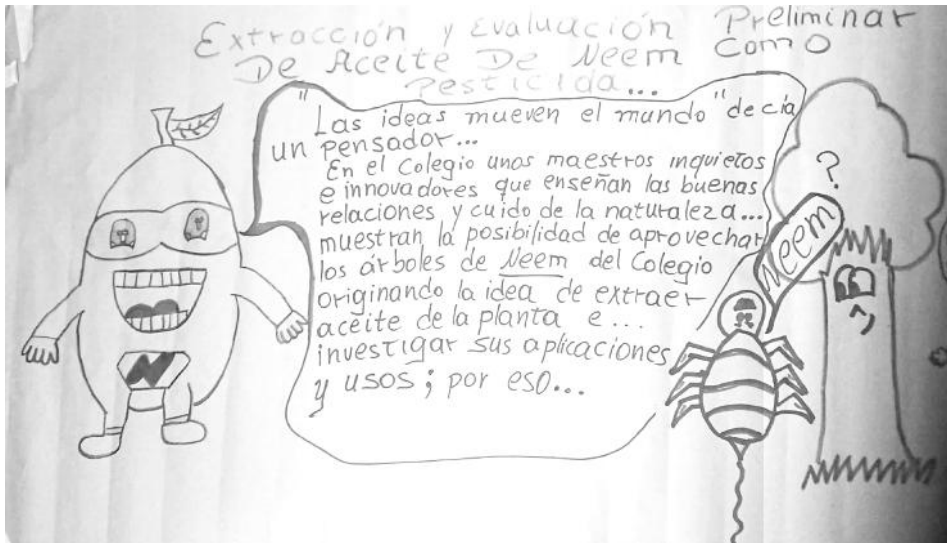 Extracción y Evaluación Preliminar
De Aceite De Neem Como
Pesticida...
"Las ideas mueven el mundo" decía
un pensador...
En el Colegio unos maestros inquietos
e innovadores que enseñan las buenas
relaciones y cuido de la naturaleza...
muestran la posibilidad de aprovechar
los árboles de Neem del Colegio
originando la idea de extraer
aceite de la planta e...
investigar sus aplicaciones
y usos; por eso...
?
Neem
N